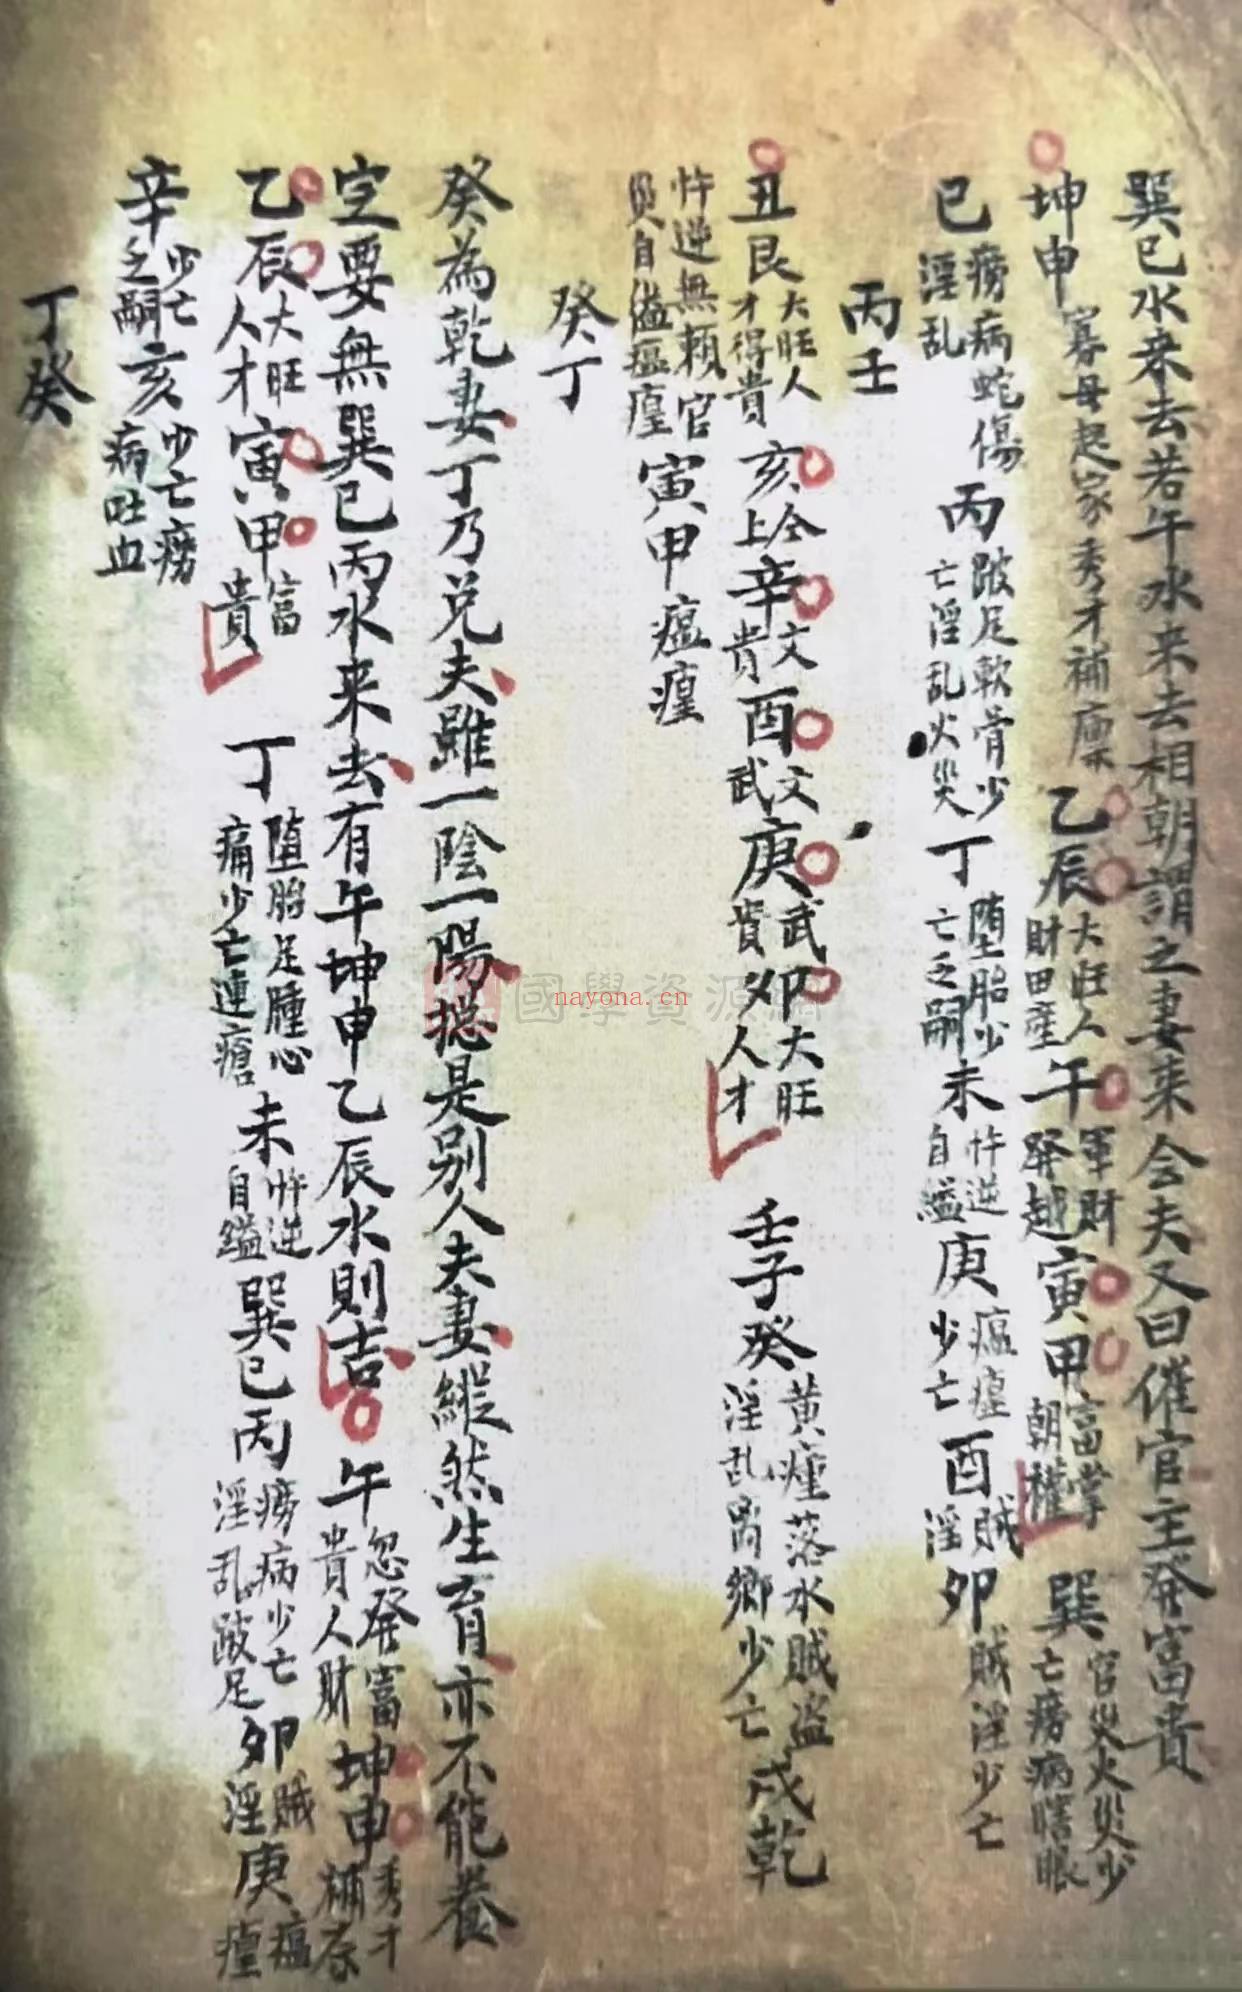 巽巳水来去若午水来去相朝謂之妻来会夫又曰催官主発富貴
坤申寡母起家秀才補廩 乙辰大旺人財田産午軍財発越寅甲富掌朝權 巽官災火災少亡癆病瞎眼
巳癆病蛇傷淫乱 丙跛足軟骨少亡淫乱火災丁堕胎少亡乏嗣未忤逆自縊庚瘟㾮少亡酉賊淫卯賊淫少亡
丙壬
丑艮大旺人才得貴亥仝上辛文貴酉文武庚武貴卯大旺人才 壬子癸黄瘇落水賊盗淫乱离鄉少亡戌乾
忤逆無賴官員自縊瘟㾮寅甲瘟㾮
癸丁
癸為乾妻丁乃兌夫雖一陰一陽揔是別人夫妻縱然生育亦不能養
定要無巽巳丙水来去有午坤申乙辰水則吉 午忽発富貴人財坤申秀才補廩
乙辰大旺人才寅甲富貴 丁堕胎足腫心痛少亡連瘡未忤逆自縊巽巳丙癆病少亡淫乱跛足卯賊淫庚瘟㾮
辛少亡乏嗣亥少亡癆病吐血
丁癸
國學資源
nayona.cn